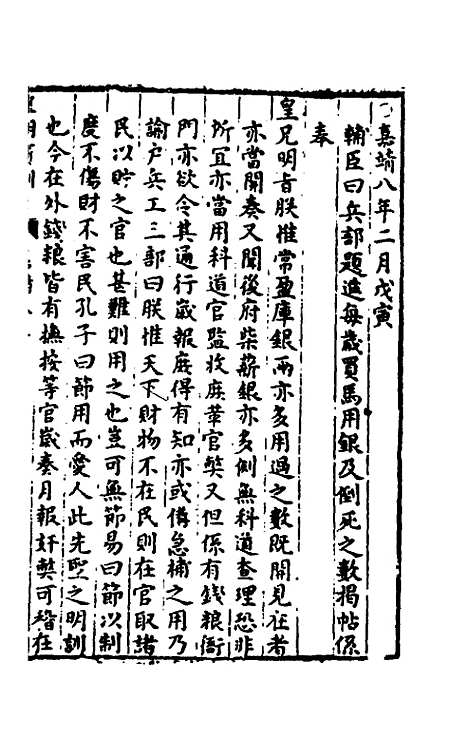 嘉靖八年二月戊寅
輔臣曰兵部題進每歲買馬用銀及倒死之數揭帖係
奉
皇兄明旨朕惟常盈庫銀兩亦多用過之數既開見在者
亦當開奏又聞後府柴薪銀亦多例無科道查理恐非
所宜亦當用科道官監收庶革官獘又但係有錢粮衙
門亦欲令其通行歲報庶得有知亦或備急補之用乃
諭户兵工三部曰朕惟天下財物不在民則在官取諸
民以貯之官也甚難則用之也豈可無節易曰節以制
度不傷財不害民孔子曰節用而愛人此先聖之明訓
也今在外錢粮皆有撫按等官歲奏月報奸獘可稽在